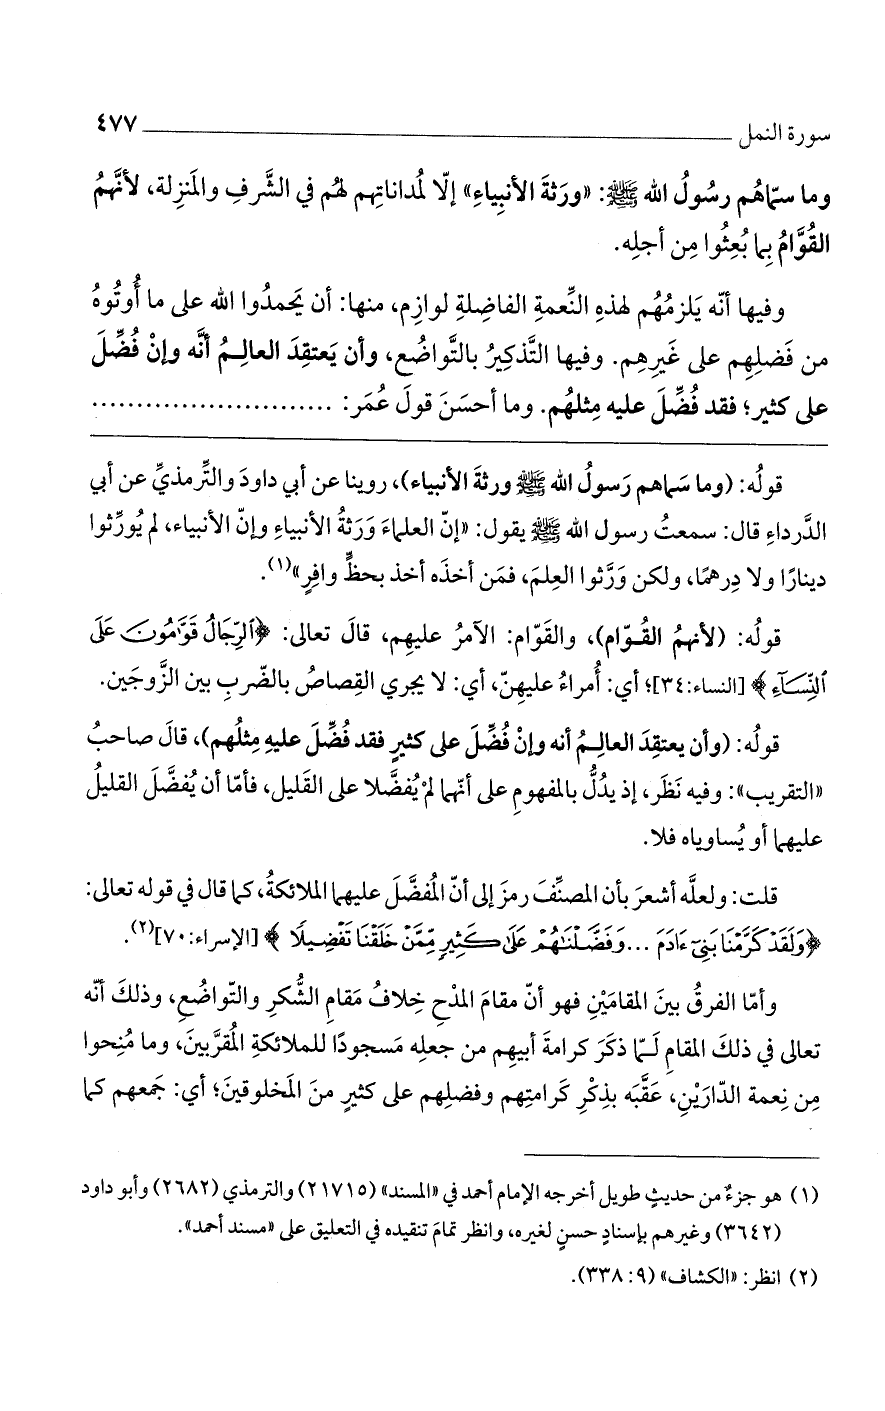 سورة النمل ٤٧٧
وما سمّاهُم رسُولُ الله ﷺ: «ورَثةَ الأنبِياءِ» إلّا لمُداناتِهِم لهُم في الشَّرفِ والمَنزِلة، لأنَّهمُ
القُوَّامُ بِما بُعِثُوا مِن أجلِه.
وفيها أنّه يَلزمُهُم لهذهِ النِّعمةِ الفاضِلةِ لوازِم، منها: أن يَحمدُوا الله على ما أُوتُوهُ
من فَضلِهِم على غَيرِهِم. وفيها التَّذكِيرُ بالتَّواضُع، وأن يَعتقِدَ العالِمُ أنَّه وإنْ فُضِّلَ
على كثيرٍ؛ فقد فُضِّلَ عليه مِثلهُم. وما أحسَنَ قولَ عُمَر: ...........................
قولُه: (وما سَماهم رَسولُ الله ﷺ ورثةَ الأنبياء)، روينا عن أبي داودَ والتِّرمذيِّ عن أبي
الدَّرداءِ قال: سمعتُ رسول الله ﷺ يقول: «إنّ العلماءَ وَرَثةُ الأنبياءِ وإنّ الأنبياء، لم يُورِّثوا
دينارًا ولا دِرهمًا، ولكن وَرَّثوا العِلمَ، فمَن أخذَه أخذ بحظٍّ وافِرٍ»(١).
قولُه: (لأنهمُ القُوّام)، والقَوّام: الآمرُ عليهِم، قالَ تعالى: ﴿ٱلرِّجَالُ قَوَّٰمُونَ عَلَى
ٱلنِّسَآءِ﴾ [النساء: ٣٤]؛ أي: أُمراءُ عليهِنّ، أي: لا يجري القِصاصُ بالضّربِ بين الزَّوجَين.
قولُه: (وأن يعتقِدَ العالِمُ أنه وإنْ فُضِّلَ على كثيرٍ فقد فُضِّلَ عليهِ مِثلُهم)، قالَ صاحبُ
«التقريب»: وفيه نَظَر، إذ يدُلُّ بالمفهومِ على أنّهما لمْ يُفضَّلا على القَليل، فأمّا أن يُفضَّلَ القليلُ
عليهما أو يُساوياه فلا.
قلت: ولعلَّه أشعرَ بأن المصنِّفَ رمزَ إلى أنّ المُفضَّلَ عليهما الملائكةُ، كما قال في قوله تعالى:
﴿وَلَقَدْ كَرَّمْنَا بَنِىٓ ءَادَمَ ... وَفَضَّلْنَٰهُمْ عَلَىٰ كَثِيرٍ مِّمَّنْ خَلَقْنَا تَفْضِيلًا﴾ [الإسراء: ٧٠](٢).
وأمّا الفرقُ بينَ المقامَيْنِ فهو أنّ مقامَ المدْحِ خِلافُ مَقامِ الشُّكرِ والتّواضُعِ، وذلكَ أنّه
تعالى في ذلكَ المقامِ لَمّا ذكَرَ كرامةَ أبيهِم من جعلِه مَسجودًا للملائكةِ المُقرَّبينَ، وما مُنِحوا
مِن نِعمة الدّارَيْنِ، عَقَّبَه بذِكْرِ كَرامتِهِم وفضلِهِم على كثيرٍ منَ المَخلوقينَ؛ أي: جَمعهم كما
(١) هو جزءٌ من حديثٍ طويل أخرجه الإمام أحمد في «المسند» (٢١٧١٥) والترمذي (٢٦٨٢) وأبو داود
(٣٦٤٢) وغيرهم بإسنادٍ حسنٍ لغيره، وانظر تمامَ تنقيده في التعليق على «مسند أحمد».
(٢) انظر: «الكشاف» (٩: ٣٣٨).